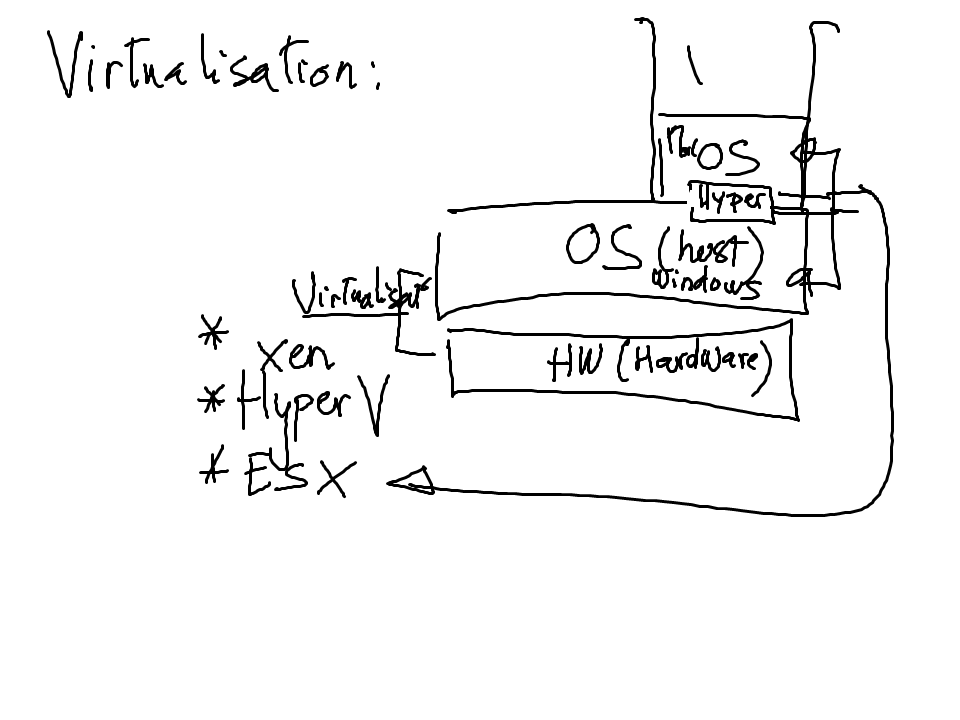 Virtualisation:
Mac OS
Hyper
OS (host)
Windows
Virtualisat
HW (Hardware)
* xen
* Hyper V
* ESX